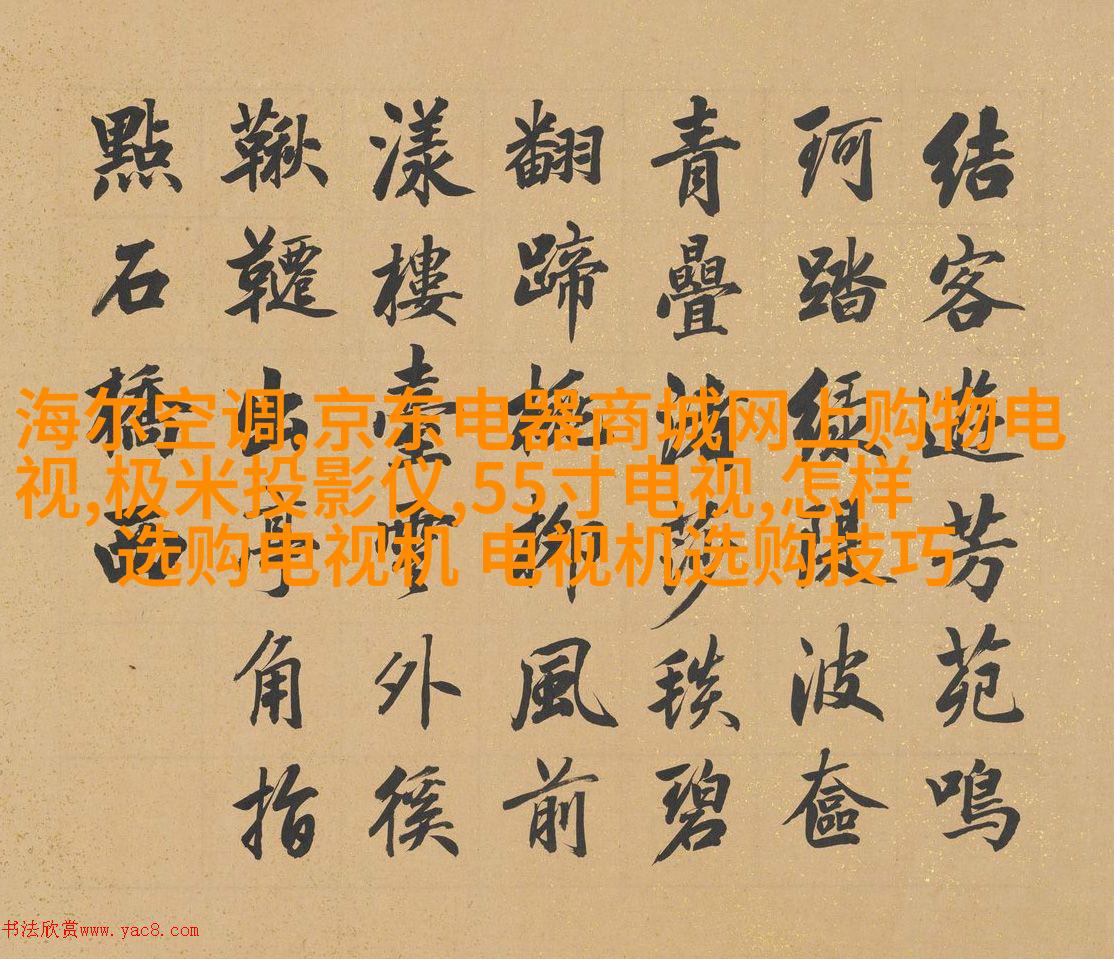 結客遊芳苑鳴
珂踏綠堤波奩
青疊渚莎毯碧
翻蹄柳風前
漾樓臺雲外徯
鞦韆出亭角指
點石橋西
海尔空调,京东电器商城网上购物电
视,极米投影仪,55寸电视,怎样
选购电视机 电视机选购技巧
书法欣赏www.yac8.com